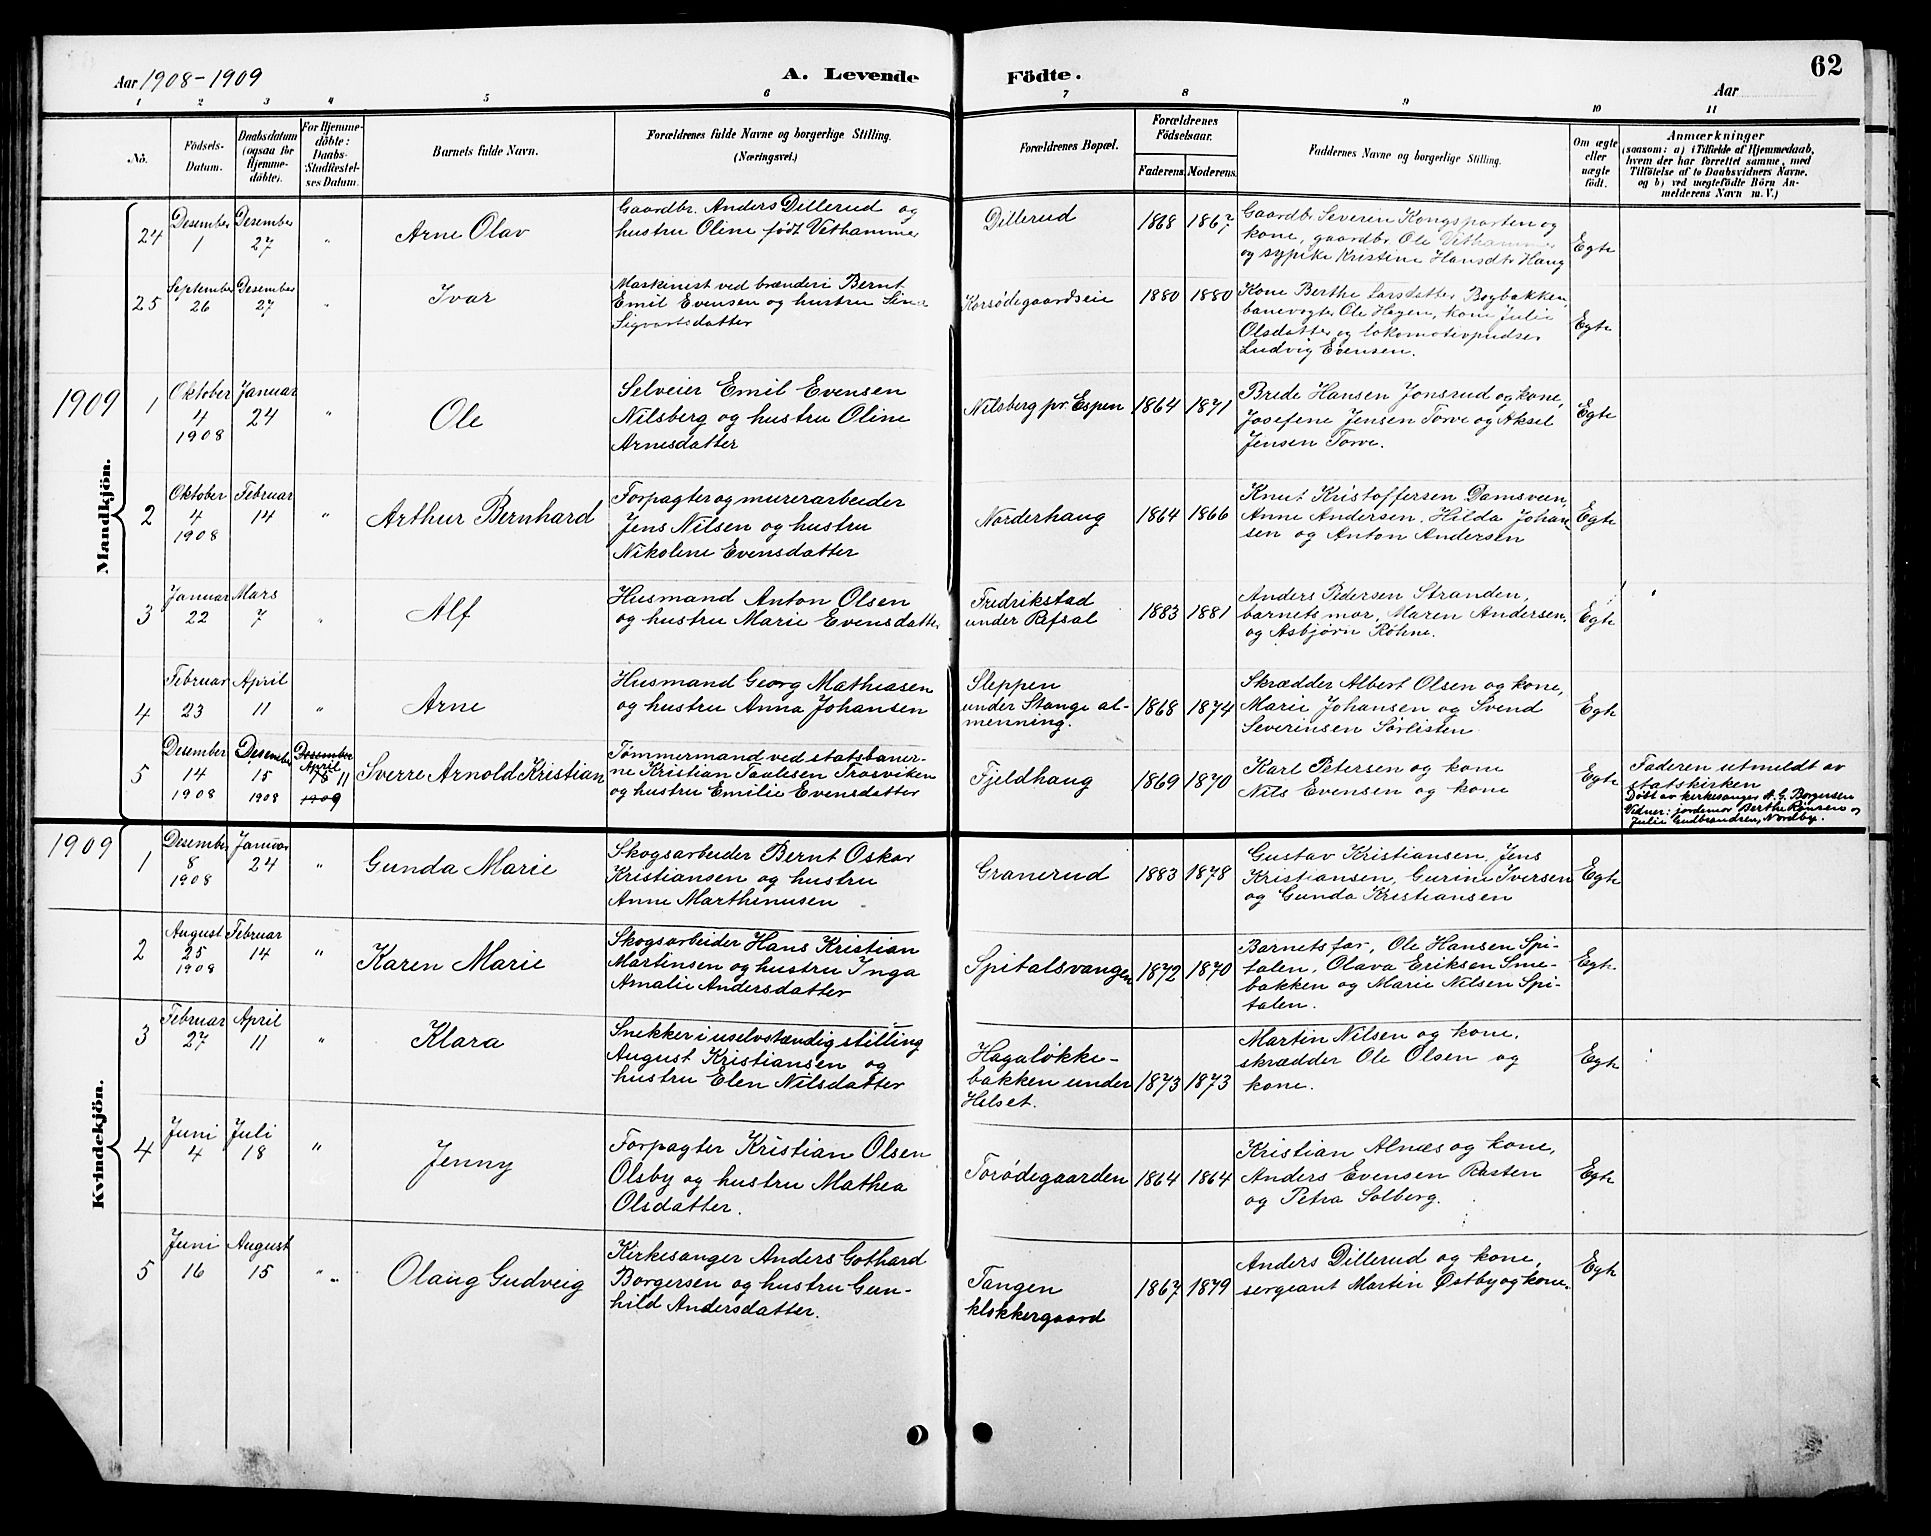 Aar 1908-1909
A. Levende
Födte.
Aar
62
1 2 3 4 5 6 7 8 9 10 11
Nô.
Födsels-
Datum.
Daabsdatum
(ogsaa for
Hjemme-
döbte).
For Hjemme-
döbte:
Daabs-
Stadfæstel-
ses Datum.
Barnets fulde Navn.
Forældrenes fulde Navne og borgerlige Stilling.
(Næringsvei.)
Forældrenes Bopæl.
Forældrenes
Födselsaar.
Faderens. Moderens.
Faddernes Navne og borgerlige Stilling.
Om ægte
eller
uægte
födt.
Anmærkninger
(saasom: a) i Tilfælde af Hjemmedaab,
hvem der har forrettet samme, med
Tilföielse af to Daabsvidners Navne,
og b) ved uægtefödte Börn An-
melderens Navn m. V.)
Mandkjön.
24
Desember
1
Desember
27
"
Arne Olav
Gaardbr. Anders Dillerud og
hustru Oline født Vethammer
Dillerud
1868 1867
Gaardbr Severin Kongsparten og
kone, gaardbr Ole Vethammer
og sypike Kristine Hansdtr Haug
Egte
25
September
26
Desember
27
"
Ivar
Maskinist ved brænderi Bernt
Emil Evensen og hustru Sina
Sigvartsdatter
Korsødegaardseie
1880 1880
Kone Berthe Larsdatter Bogbakken,
banevogter Ole Hagen, kone Julie
Olsdatter og lokomotivpudser
Ludvig Evensen.
Egte
1909
1
Oktober
4
1908
Januar
24
"
Ole
Selveier Emil Evensen
Nilsberg og hustru Oline
Arnesdatter
Nilsberg pr. Espen
1864 1871
Brede Hansen Jonsrud og kone,
Josefine Jensen Torve og Aksel
Jensen Torve.
Egte
2
Oktober
4
1908
Februar
14
"
Arthur Bernhard
Forpagter og murerarbeider
Jens Nilsen og hustru
Nikoline Evensdatter
Norderhaug
1864 1866
Knut Kristoffersen Damsveen,
Anne Andersen, Hilda Johan
sen og Anton Andersen
Egte
3
Januar
22
Mars
7
"
Alf
Husmand Anton Olsen
og hustru Marie Evensdatter
Fredrikstad
under Refsal
1883 1881
Anders Pedersen Stranden,
barnets mor, Maren Andersen,
og Asbjørn Røhne.
Egte
4
Februar
23
April
11
"
Arne
Husmand Georg Mathiasen
og hustru Anna Johansen
Sleppen
under Stange al-
menning.
1868 1874
Skrædder Albert Olsen og kone,
Marie Johansen og Svend
Severinsen Sørlisten
Egte
5
Desember
14
1908
Desember
15
1908
Desember
April
15 11
1909
Sverre Arnold Kristian
Tømmermand ved statsbaner-
ne Kristian Paulesen Trosviken
og hustru Emilie Evensdatter
Fjeldhaug
1869 1870
Karl Petersen og kone
Nils Evensen og kone
Egte
Faderen utmeldt av
statskirken
Døbt av kirkesanger A. G. Borgersen
Vidner: jordemor Berthe Rønsen og
Julie Gudbrandsen, Nordby.
Kvindekjön.
1909
1
Desember
8
1908
Januar
24
"
Gunda Marie
Skogsarbeider Bernt Oskar
Kristiansen og hustru
Anne Marthinusen
Granerud
1883 1878
Gustav Kristiansen, Jens
Kristiansen, Gurine Iversen
og Gunda Kristiansen
Egte
2
August
25
1908
Februar
14
"
Karen Marie
Skogsarbeider Hans Kristian
Martinsen og hustru Inga
Amalie Andersdatter
Spitalsvangen
1872 1870
Barnets far, Ole Hansen Spi-
talen, Olava Eriksen Sme-
bakken og Marie Nilsen Spi-
talen.
Egte
3
Februar
27
April
11
"
Klara
Snekker i uselvstændig stilling
August Kristiansen og
hustru Elen Nilsdatter
Hagaløkke-
bakken under
Hilset.
1873 1873
Martin Nilsen og kone,
skrædder Ole Olsen og
kone.
Egte
4
Juni
4
Juli
18
"
Jenny
Forpagter Kristian Olsen
Olsby og hustru Mathea
Olsdatter.
Torødegaarden
1864 1864
Kristian Alnæs og kone,
Anders Evensen Rasten
og Petra Solberg.
Egte
5
Juni
16
August
15
"
Olaug Gudveig
Kirkesanger Anders Gothard
Borgersen og hustru Gun-
hild Andersdatter.
Tangen
klokkergaard
1867 1879
Anders Dillerud og kone,
sergeant Martin Østby og kone.
Egte